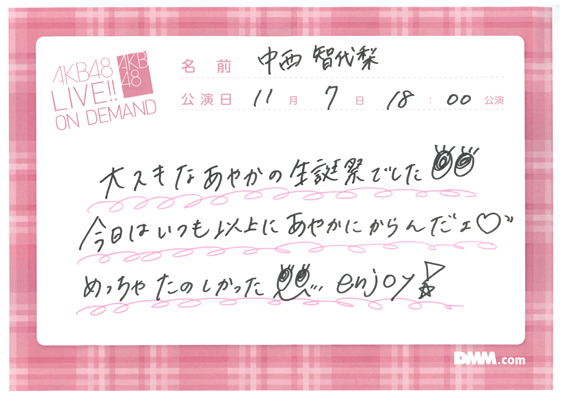 AKB48
LIVE!!
ON DEMAND
AKB
48
名前 中西 智代梨
公演日 11月 7日 18:00 公演
大スキなあやかの生誕祭でした
今日はいつも以上にあやかにからんだェ♡”
めっちゃたのしかった ... enjoy!
DMM.com